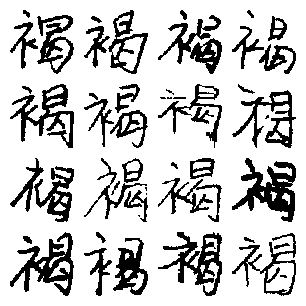 褐褐褐褐
褐褐褐褐
褐褐褐褐
褐褐褐褐